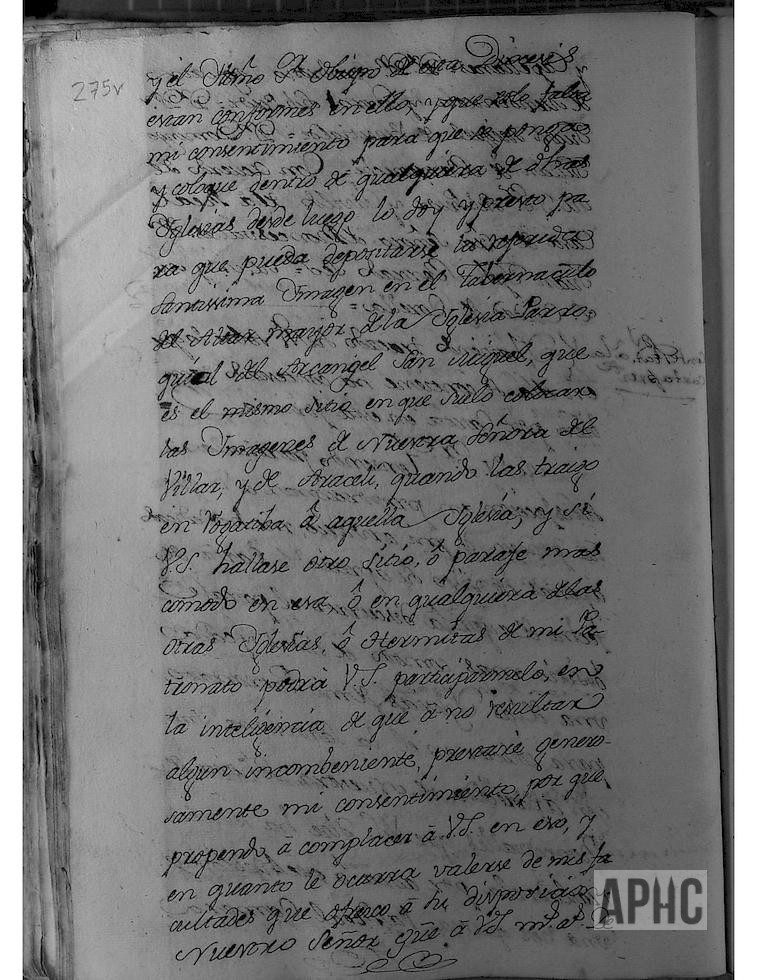 275v
y el Yltmõ Sr. Obispo de esa Diocesis
estan conformes en ello, y que solo falta
mi consentimiento para que se ponga
y coloque dentro de qualquiera de dhas
Yglesias desde luego lo doy y presto pa
ra que pueda depositarse la referida
Santissima Ymagen en el Tabernaculo
del Altar mayor de la Yglesia Parro-
quial del Arcangel San Miguel, que
es el mismo sitio en que suelo colocar
las Ymagenes de Nuestra Señora del
Villar, y de Araceli, quando las traigo
en Rogatiba â aquella Yglesia; y si
V.S. hallase otro sitio, ô paraje mas
comodo en esa ô en qualquiera de las
otras Yglesias, ô Hermitas de mi Pa-
tronato podrà V.S. participarmelo, en
la inteligencia de que â no resultar
algun incombeniente, prestarè genero-
samente mi consentimiento, por que
propendo â complacer â V.S. en eso, y
en quanto le ocurra valerse de mis fa
cultades que ofrezco â su disposicion
Nuestro Señor gũe â V.S. ms. as.